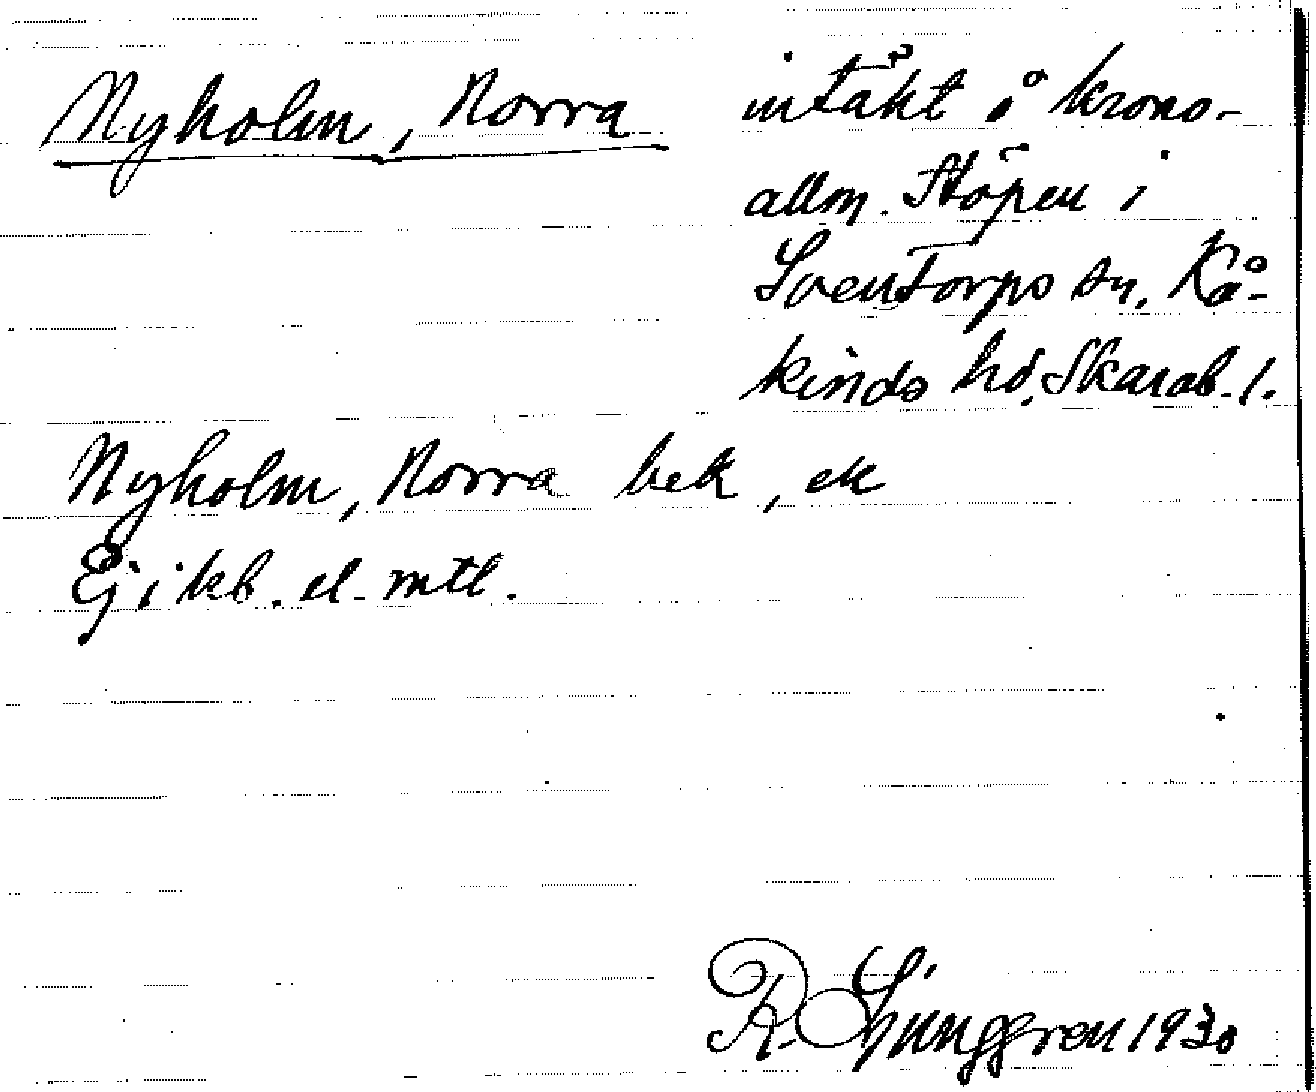 Nyholm, Norra intäkt å krono-
allm. Stöpen i
Sventorps sn, Kå-
kinds hd, Skarab. l.
Nyholm, Norra bek, ek
Ej i kb. el. mtl.
R. Ljunggren 1930